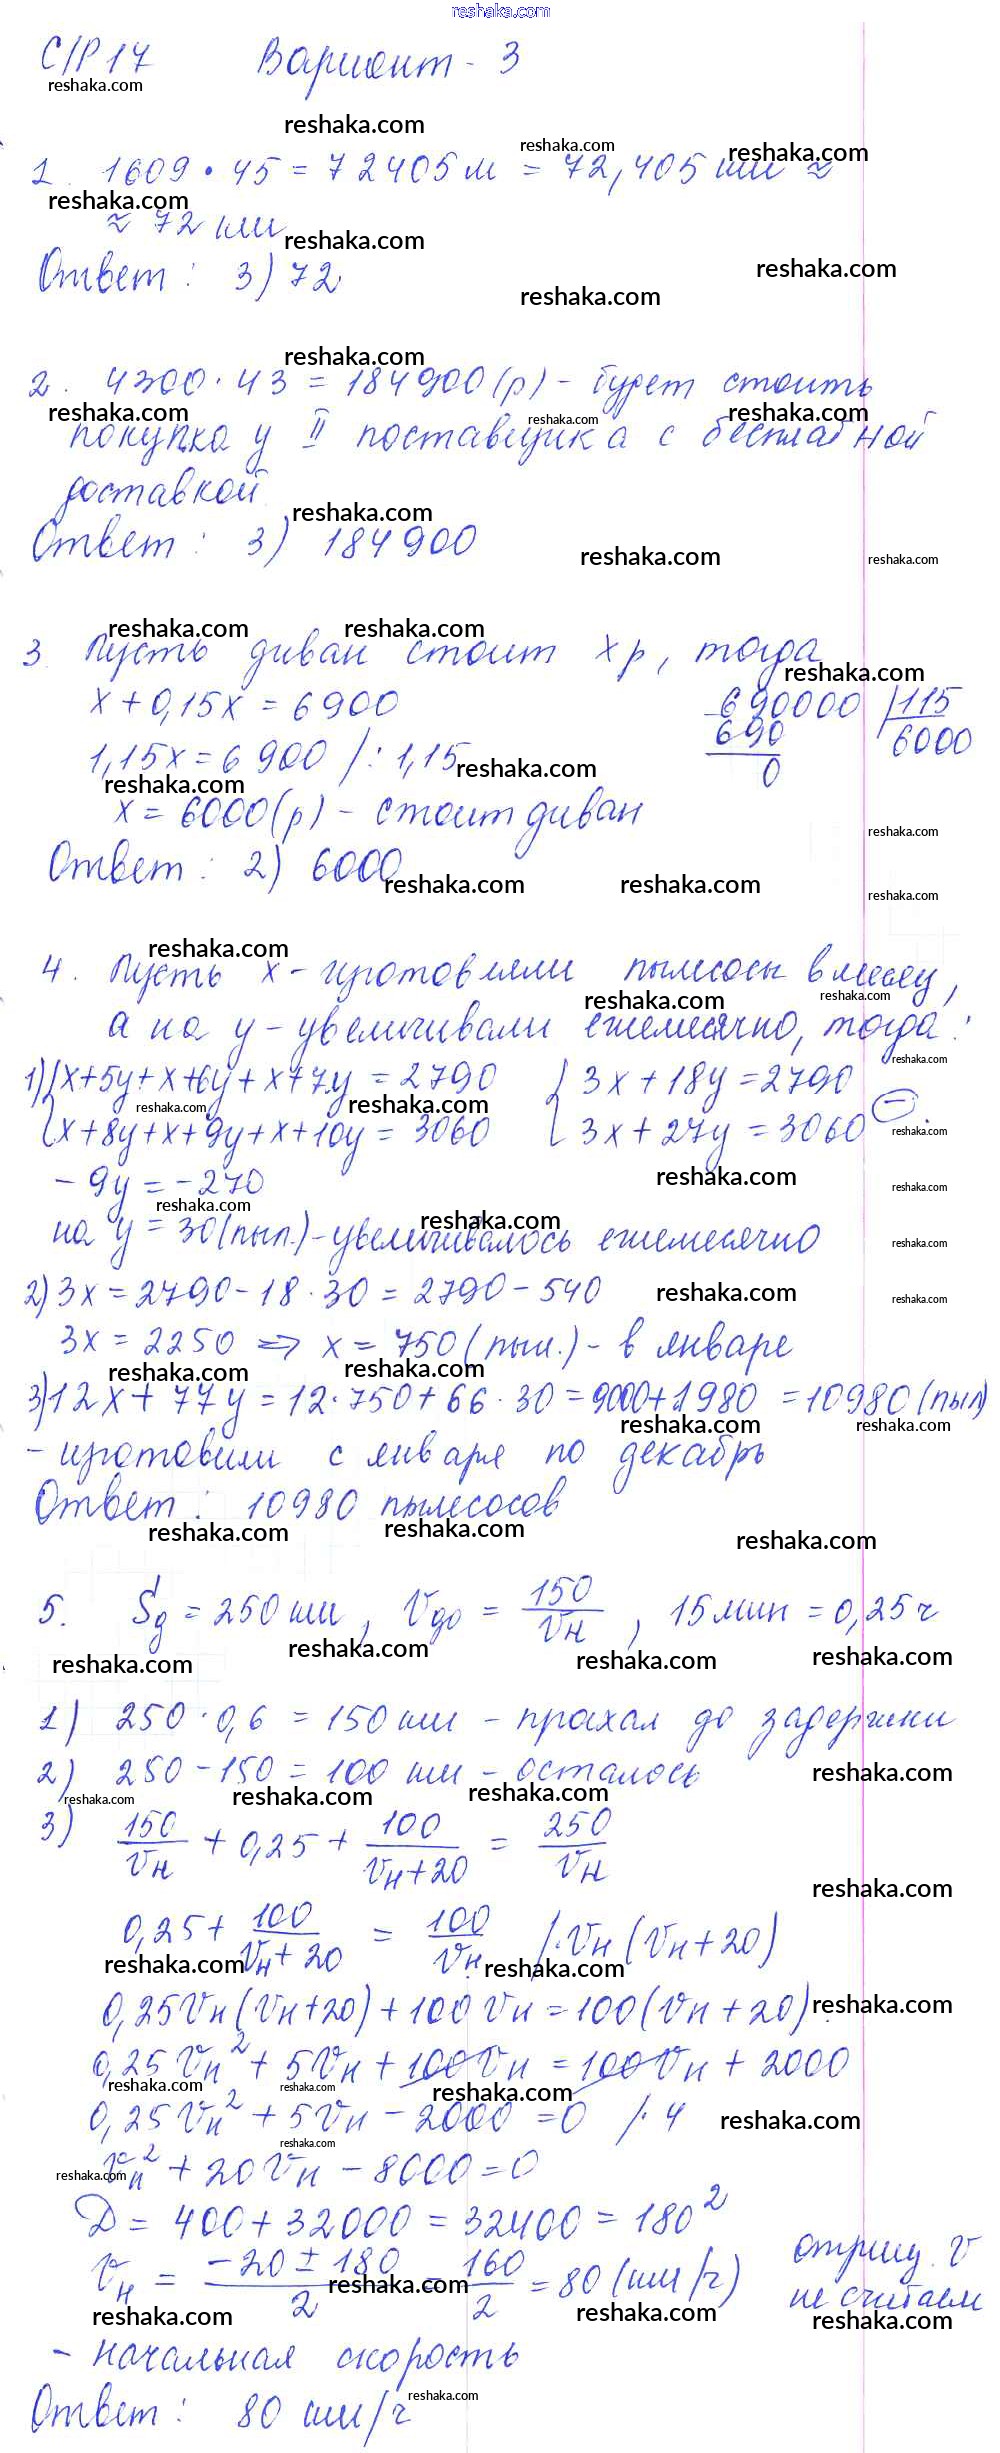 reshaka.com
С/Р 17 Вариант - 3
1. 1609 · 45 = 72405 м = 72,405 км ≈
≈ 72 км
Ответ: 3) 72
2. 4300 · 43 = 184900 (р) - будет стоить
покупка у II поставщика с бесплатной
доставкой
Ответ: 3) 184900
3. Пусть диван стоит х р, тогда
х + 0,15х = 6900
1,15х = 6900 /: 1,15
х = 6000 (р) - стоит диван
690000 | 115
690 6000
0
Ответ: 2) 6000
4. Пусть х - изготовляли пылесосы в месяц,
а на у - увеличивали ежемесячно, тогда:
1) { х+5у+х+6у+х+7у = 2790 { 3х + 18у = 2790
{ х+8у+х+9у+х+10у = 3060 { 3х + 27у = 3060 (-)
- 9у = - 270
на у = 30 (пыл.) - увеличивалось ежемесячно
2) 3х = 2790 - 18 · 30 = 2790 - 540
3х = 2250 => х = 750 (пыл.) - в январе
3) 12х + 77у = 12 · 750 + 66 · 30 = 9000 + 1980 = 10980 (пыл)
- изготовили с января по декабрь
Ответ: 10980 пылесосов
5. Sд = 250 км, Vдо = 150/Vн, 15 мин = 0,25 ч
1) 250 · 0,6 = 150 км - проехал до задержки
2) 250 - 150 = 100 км - осталось
3) 150/Vн + 0,25 + 100/(Vн + 20) = 250/Vн
0,25 + 100/(Vн + 20) = 100/Vн / · Vн (Vн + 20)
0,25Vн (Vн + 20) + 100 Vн = 100 (Vн + 20)
0,25 Vн² + 5Vн + 100Vн = 100Vн + 2000
0,25 Vн² + 5Vн - 2000 = 0 / · 4
Vн² + 20Vн - 8000 = 0
D = 400 + 32000 = 32400 = 180²
Vн = (-20 ± 180)/2 = 160/2 = 80 (км/ч) отриц. V
не считаем
- начальная скорость
Ответ: 80 км/ч